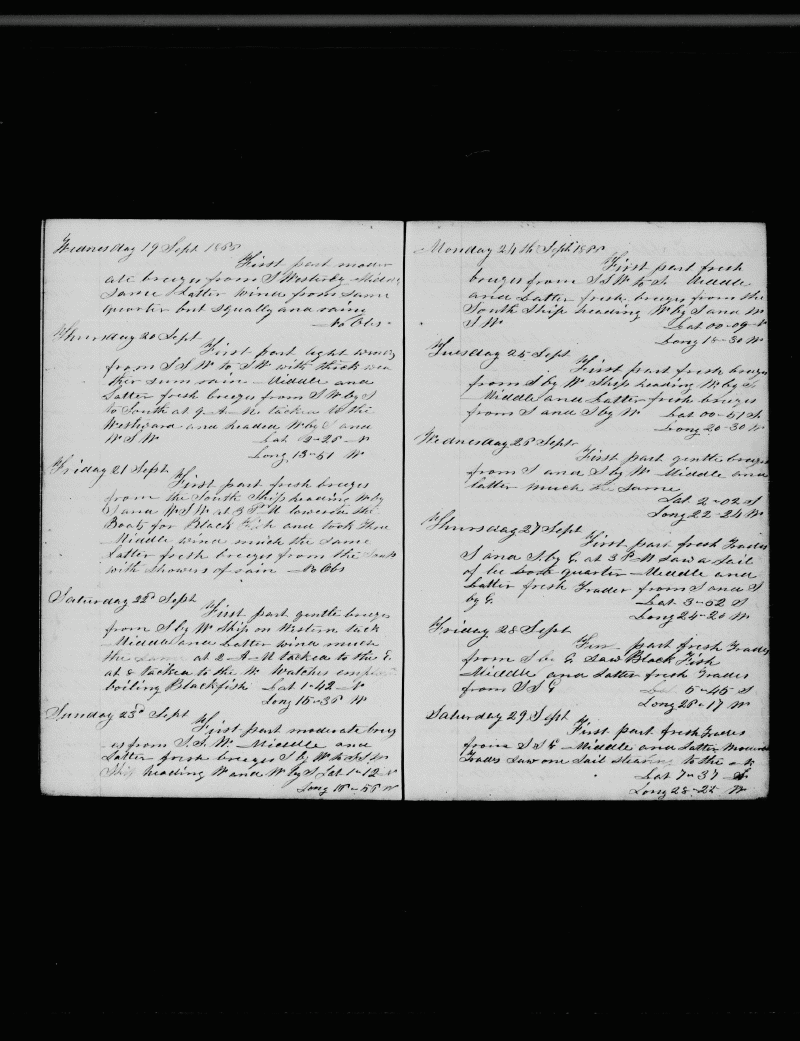 Wednesday 19 Sept
First part moder
ate breezes from S Westerly Middle
Same Latter winds from same
quarter but squally and rainy
No Obs
Thursday 20 Sept
First part light winds
from S S W to S W with thick wea
ther sum rain Middle and
Latter fresh breezes from S W by S
to South at 9 A M tacked to the
Westward and headed W by S and
W S W Lat 0-25 N
Long 13-51 W
Friday 21 Sept
First part fresh breezes
from the South Ship heading W by
S and W S W at 3 P M lowered the
Boats for Black Fish and took three
Middle wind much the same
Latter fresh breezes from the South
with showers of rain No Obs
Saturday 22d Sept
First part gentle breezes
from S by W Ship on Western tack
Middle and Latter wind much
the same at 2 A M tacked to the E.
at 8 tacked to the W. Watches employed
boiling Blackfish Lat 1-42 N
Long 15-38 W
Sunday 23d Sept
First part moderate breez
es from S.S.W. Middle and
Latter fresh breezes S by W to S S W
Ship heading W and W by S Lat 1-12 N
Long W
Monday 24th Sept
First part fresh
breezes from S S W to S Middle
and Latter fresh breezes from the
South Ship heading W by S and W
S W Lat 00-09 N
Long 18-30 W
Tuesday 25 Sept
First part fresh breezes
from S by W Ship heading W. by S.
Middle and Latter fresh breezes
from S and S by W Lat 00-51 S.
Long 20-30 W
Wednesday 26 Sept
First part gentle breezes
from S and S by W Middle and
latter much the same
Lat 2-02 S
Long 22-24 W
Thursday 27 Sept
First part fresh Trades
S and S. by E. at 3 P M saw a Sail
of lee quarter Middle and
Latter fresh Trades from S and S
by E. Lat 3-52 S
Long 24-20 W
Friday 28 Sept
part fresh Trades
from S by E. Saw Black Fish
Middle and Latter fresh Trades
from S S E Lat 5-45 S
Long 26-17 W
Saturday 29 Sept
First part fresh Trades
from S S E Middle and Latter Moderate
Trades Saw one Sail stearing to the N
Lat 7-37 S
Long 28-22 W